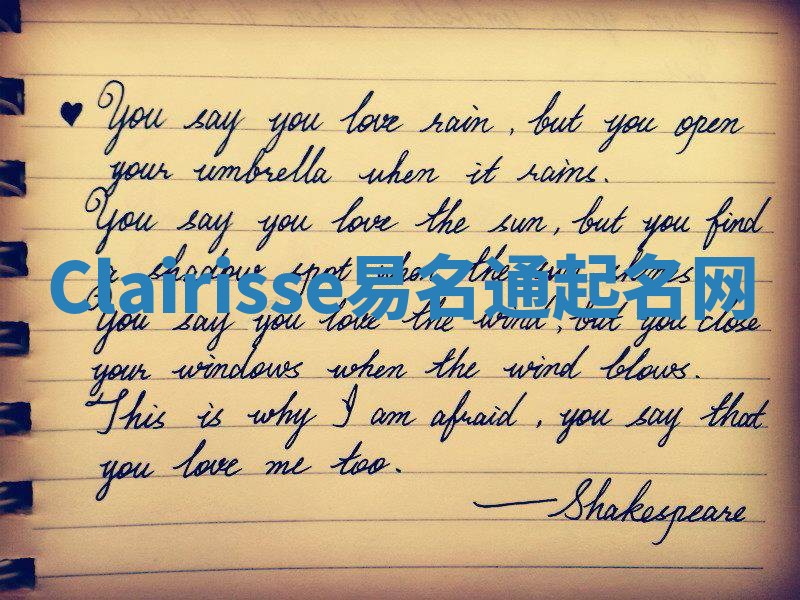 ♥ You say you love rain, but you open
your umbrella when it rains.
You say you love the sun, but you find
a shadow spot when the sun shines
Clairisse易名通起名网
You say you love the wind, but you close
your windows when the wind blows.
This is why I am afraid, you say that
you love me too.
— Shakespeare